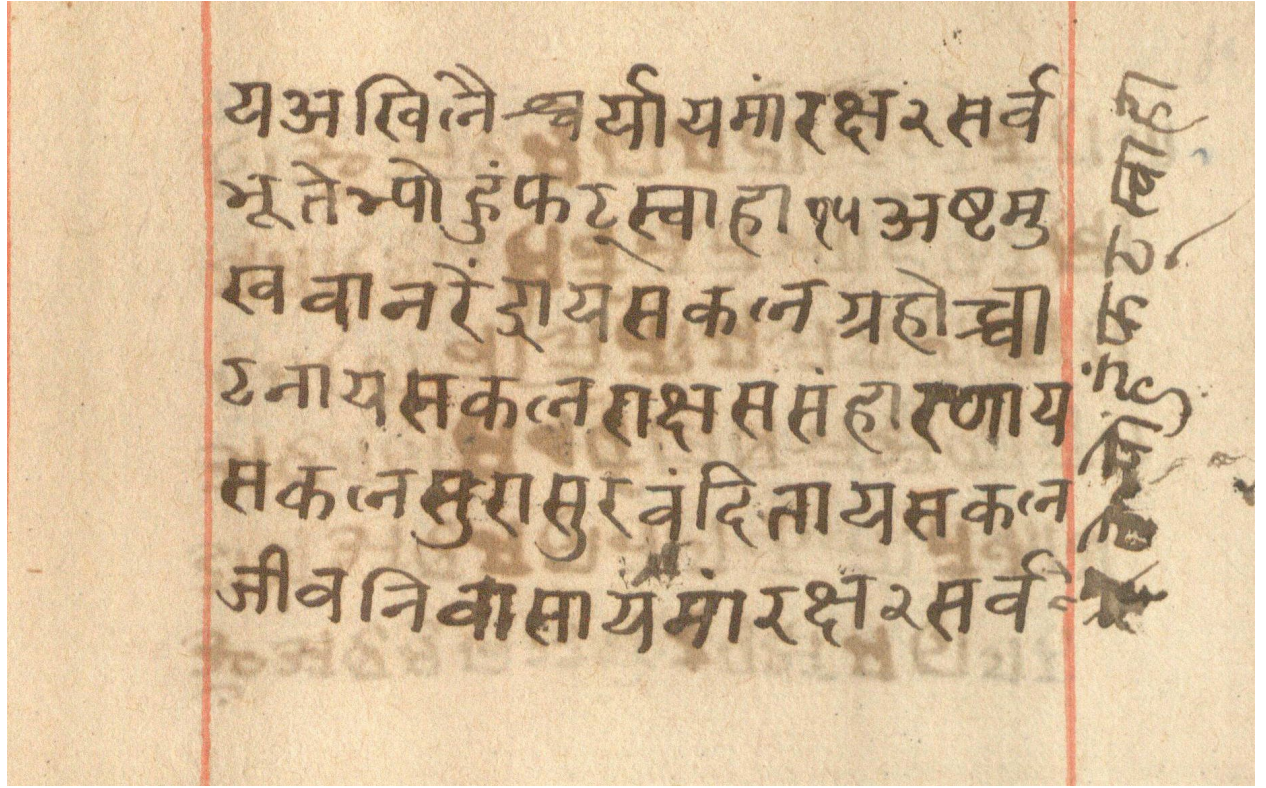 यअखिलैश्वर्यायमांरक्ष२सर्व
भूतेभ्योहुंफट्स्वाहा१५अष्टमु
खवानरेंद्रायसकलग्रहोच्चा
टनायसकलराक्षससंहारणाय
सकलसुरासुरवंदितायसकल
जीवनिवासायमांरक्ष२सर्व
भूतेभ्योहुंफटस्वाहा